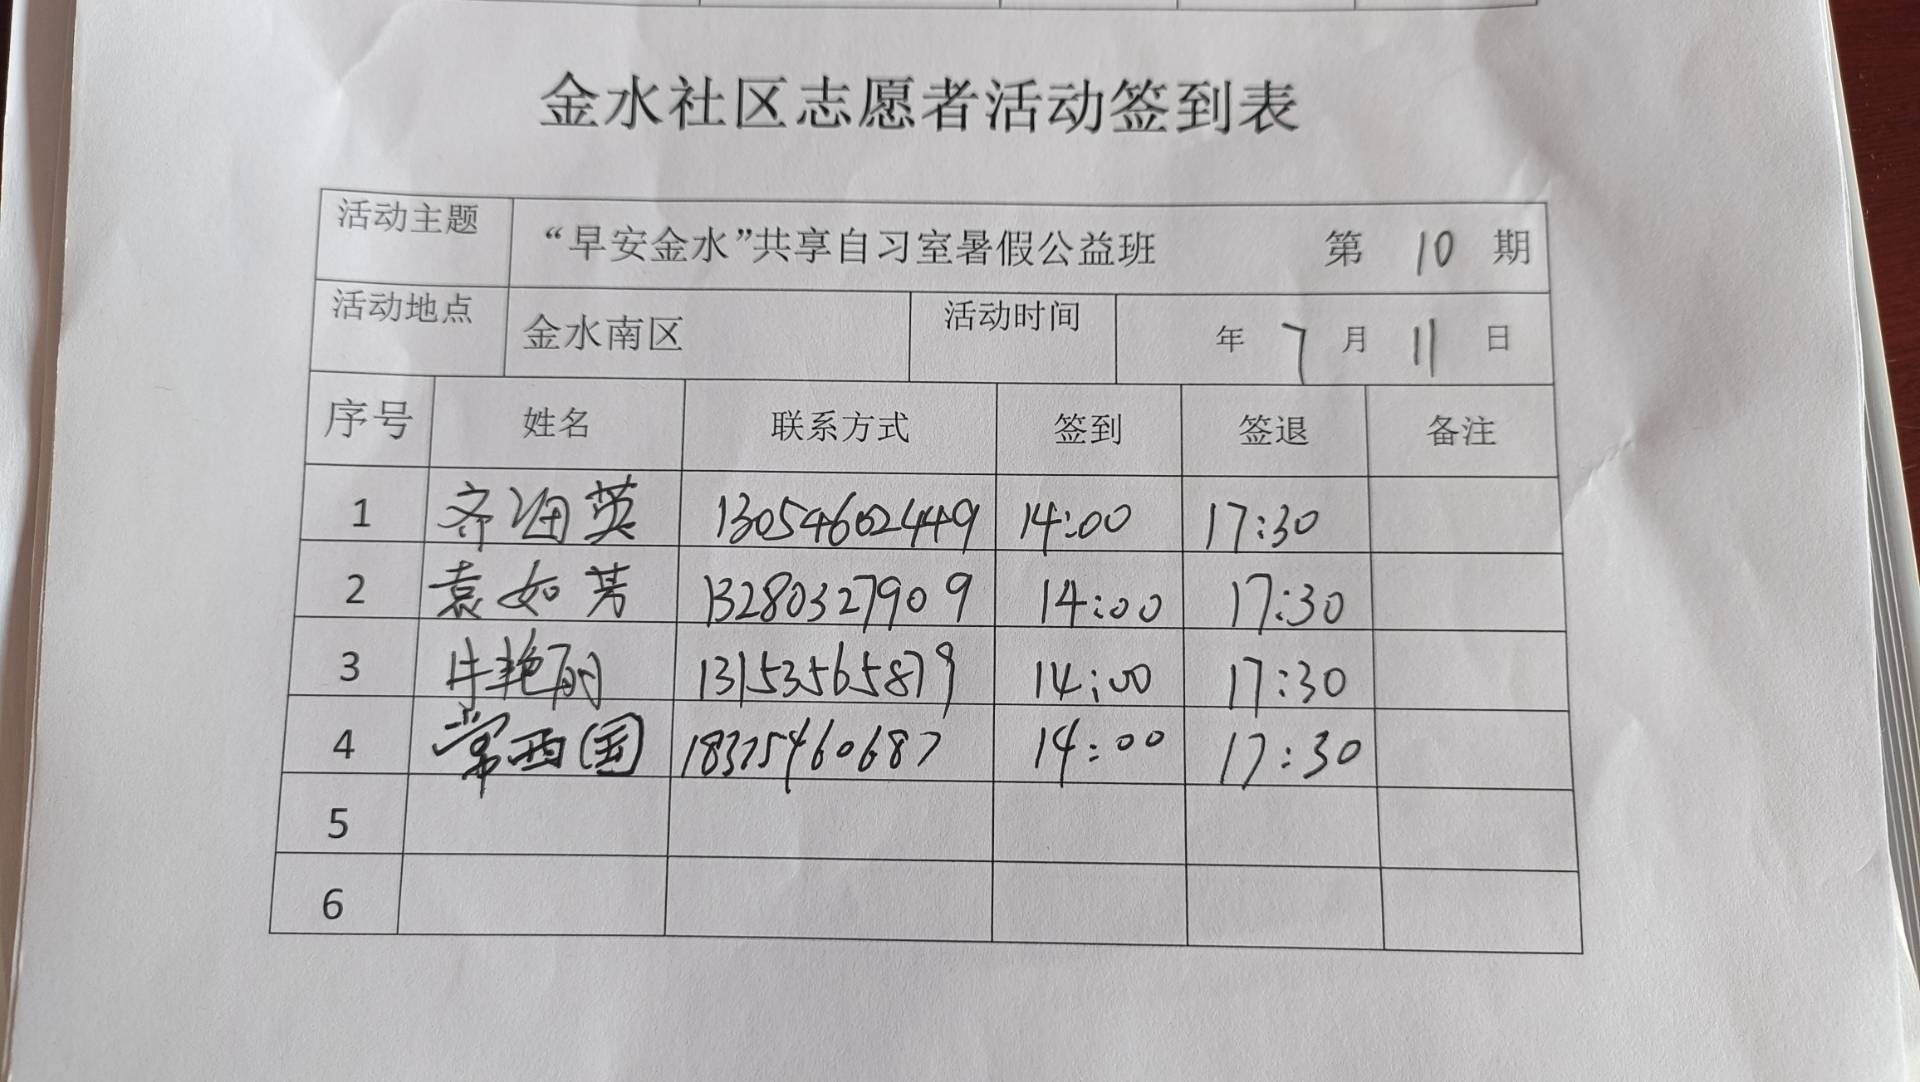 金水社区志愿者活动签到表
活动主题 “早安金水”共享自习室暑假公益班 第 10 期
活动地点 金水南区 活动时间 年 7 月 11 日
序号 姓名 联系方式 签到 签退 备注
1 齐海英 13054602449 14:00 17:30
2 袁如芳 13280327909 14:00 17:30
3 牛艳丽 13153565879 14:00 17:30
4 常西国 18375460687 14:00 17:30
5
6